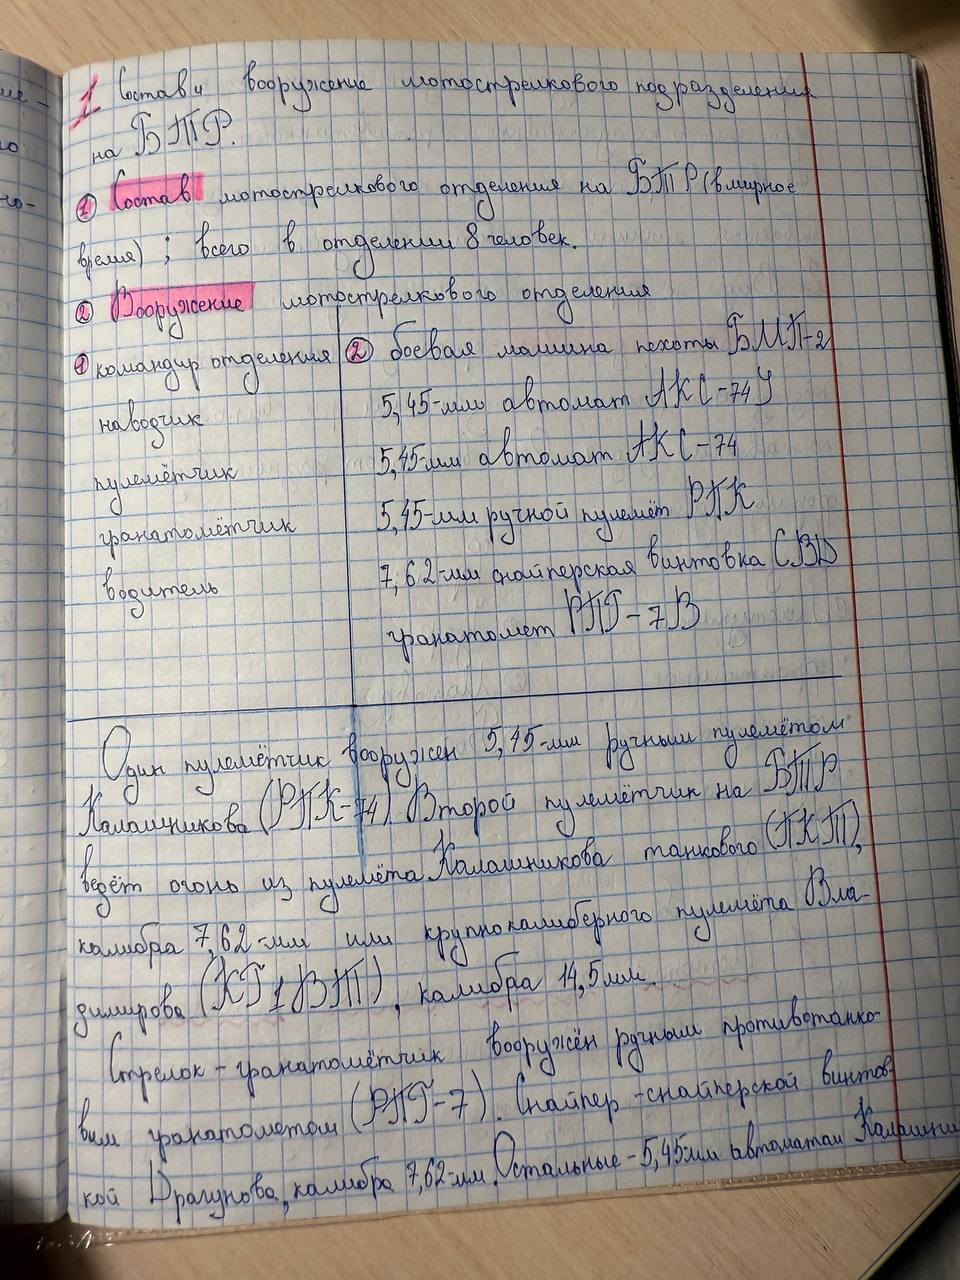 ие-
ю
1 Состав и вооружение мотострелкового подразделения
на БТР.
① Состав мотострелкового отделения на БТР (в мирное
время) ; всего в отделении 8 человек.
② Вооружение мотострелкового отделения
① командир отделения
наводчик
пулемётчик
гранатомётчик
водитель
② боевая машина пехоты БМП-2
5,45-мм автомат АКС-74У
5,45-мм автомат АКС-74
5,45-мм ручной пулемёт РПК
7,62-мм снайперская винтовка СВД
гранатомет РПГ-7В
Один пулемётчик вооружен 5,45-мм ручным пулемётом
Калашникова (РПК-74). Второй пулемётчик на БТР
ведёт огонь из пулемёта Калашникова танкового (ПКТ),
калибра 7,62-мм или крупнокалиберного пулемёта Вла-
димирова (КПВТ), калибра 14,5 мм.
Стрелок-гранатомётчик вооружён ручным противотанко-
вым гранатометом (РПГ-7). Снайпер-снайперской винтов-
кой Драгунова, калибра 7,62-мм. Остальные-5,45мм автоматам Калашни